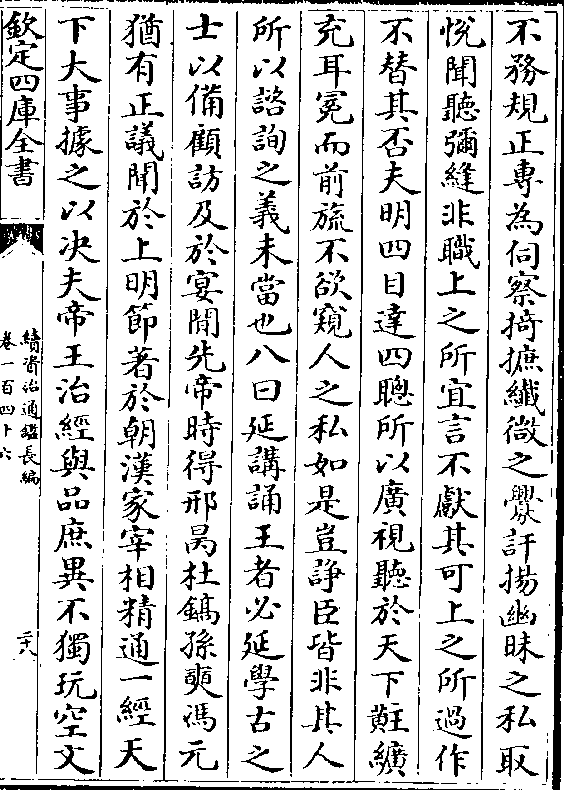 不務規正專為伺察掎摭纖微之釁訐揚幽昧之私取
悅聞聽彌縫非職上之所宜言不獻其可上之所過作
不替其否夫明四目達四聰所以廣視聽於天下黈纊
充耳冕而前旒不欲窺人之私如是豈諍臣皆非其人
所以諮詢之義未當也八曰延講誦王者必延學古之
士以備顧訪及於宴閒先帝時得邢昺杜鎬孫奭馮元
猶有正議聞於上明節著於朝漢家宰相精通一經天
下大事據之以决夫帝王治經與品庶異不獨玩空文
欽定四庫全書
續資治通鑑長編
卷一百四十六
二十八